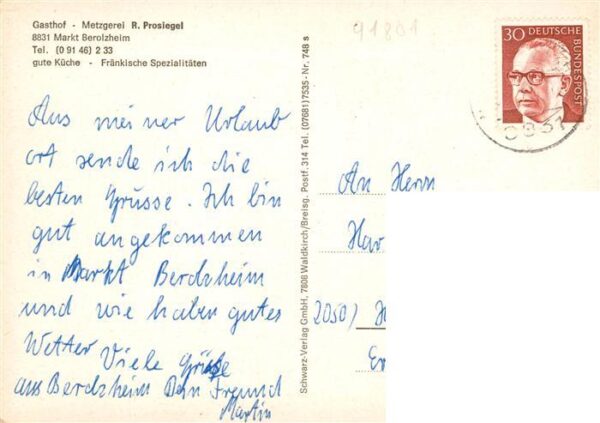 Gasthof - Metzgerei R. Prosiegel
8831 Markt Berolzheim
Tel. (0 91 46) 2 33
gute Küche - Fränkische Spezialitäten
91801
30 DEUTSCHE BUNDESPOST
8831
Aus meiner Urlaub
ort sende ich die
besten Grüsse. Ich bin
gut angekommen
in Markt Berolzheim
und wie haben gutes
Wetter Viele Grüße
aus Berolzheim Dein Freund
Martin
Schwarz-Verlag GmbH, 7808 Waldkirch/Breisg. Postf. 314 Tel. (07681)7535 - Nr. 748 s
An Herrn
Har
2050)